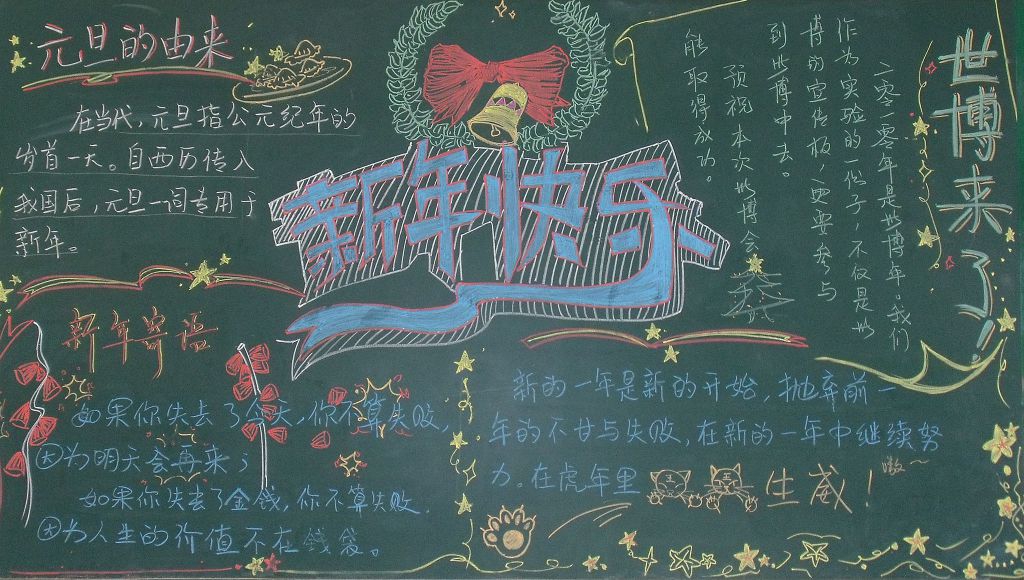 元旦的由来
在当代，元旦指公元纪年的
岁首一天。自西历传入
我国后，元旦一词专用于
新年。
新年快乐
世博来了！
二零一零年是世博年。我们
作为实验的一份子，不仅是世
博的宣传板、更要参与
到世博中去。
预祝本次世博会
能取得成功。
新年寄语
如果你失去了金钱，你不算失败，
因为明天会再来；
如果你失去了金钱，你不算失败.
因为人生的价值不在钱袋。
新的一年是新的开始，抛弃前一
年的不甘与失败，在新的一年中继续努
力。在虎年里 生威！
嗷~